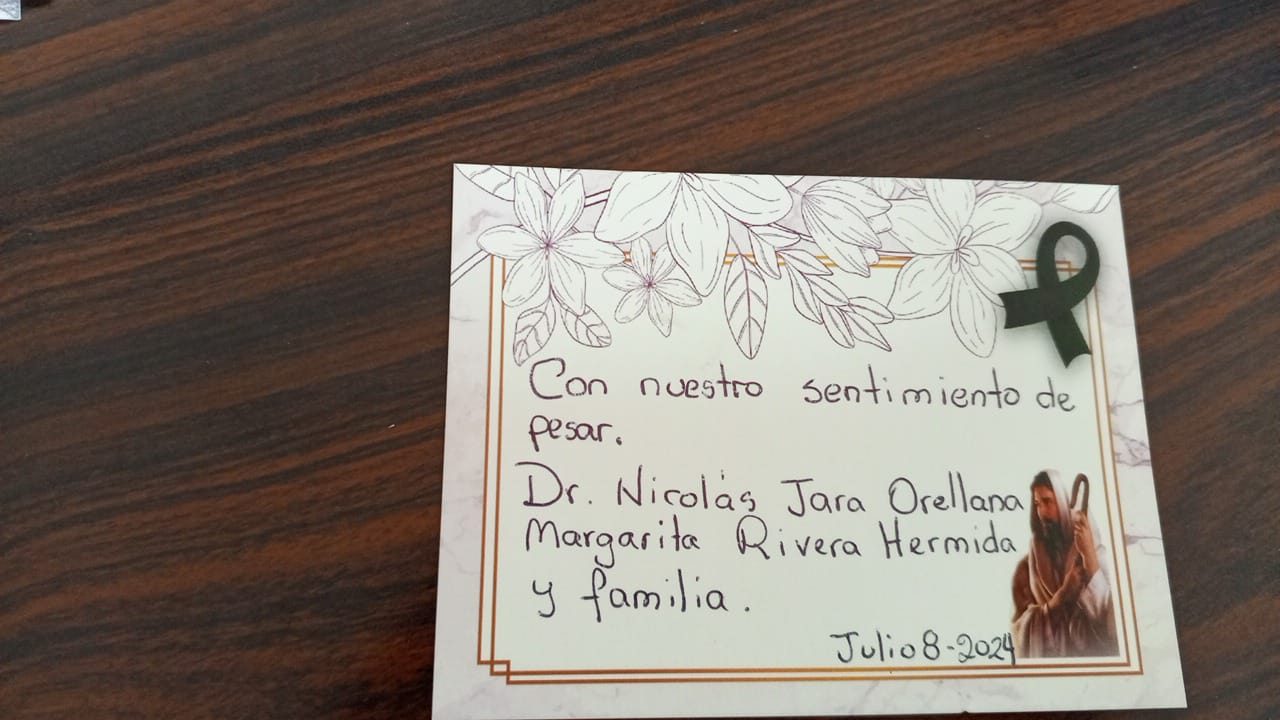 Con nuestro sentimiento de
pesar.
Dr. Nicolás Jara Orellana
Margarita Rivera Hermida
y familia.
Julio 8-2024